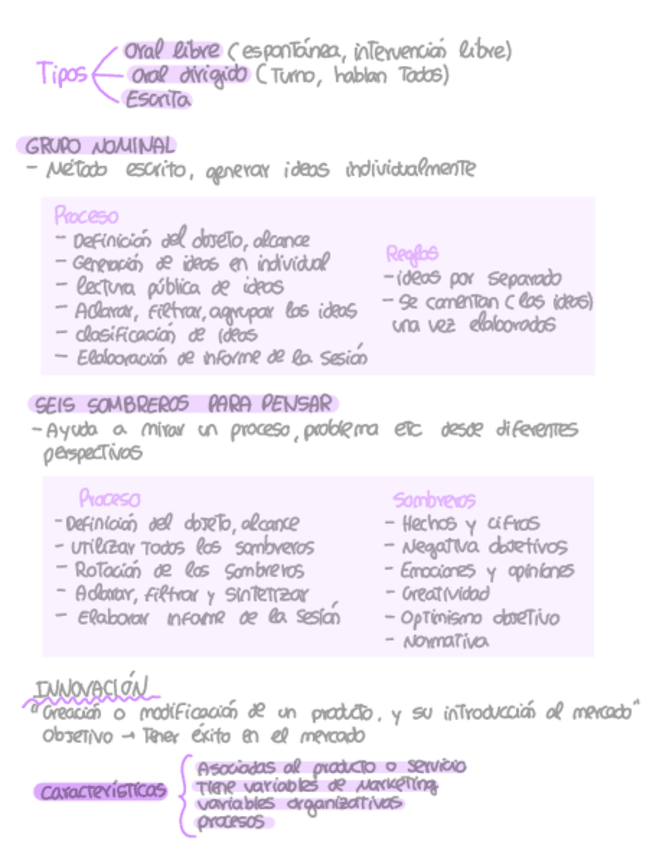 Tipos
Oral libre (espontánea, intervención libre)
Oral dirigido (Turno, hablan Todos)
Escrita
GRUPO NOMINAL
- Método escrito, generar ideas individualmente
Proceso
- Definición del objeto, alcance
- Generación de ideas en individual
- lectura pública de ideas
- Aclarar, filtrar, agrupar las ideas
- clasificación de ideas
- Elaboración de informe de la sesión
Reglas
- ideas por separado
- Se comentan (las ideas)
una vez elaborados
SEIS SOMBREROS PARA PENSAR
- Ayuda a mirar un proceso, problema etc desde diferentes
perspectivas
Proceso
- Definición del objeto, alcance
- utilizar Todos los sombreros
- Rotación de los sombreros
- Aclarar, filtrar y sintetizar
- Elaborar informe de la sesión
Sombreros
- Hechos y cifras
- Negativa objetivos
- Emociones y opiniones
- Creatividad
- Optimismo objetivo
- Normativa
INNOVACIÓN
"Creación o modificación de un producto, y su introducción al mercado"
objetivo → Tener éxito en el mercado
características
Asociadas al producto o servicio
Tiene variables de Marketing
variables organizativas
procesos